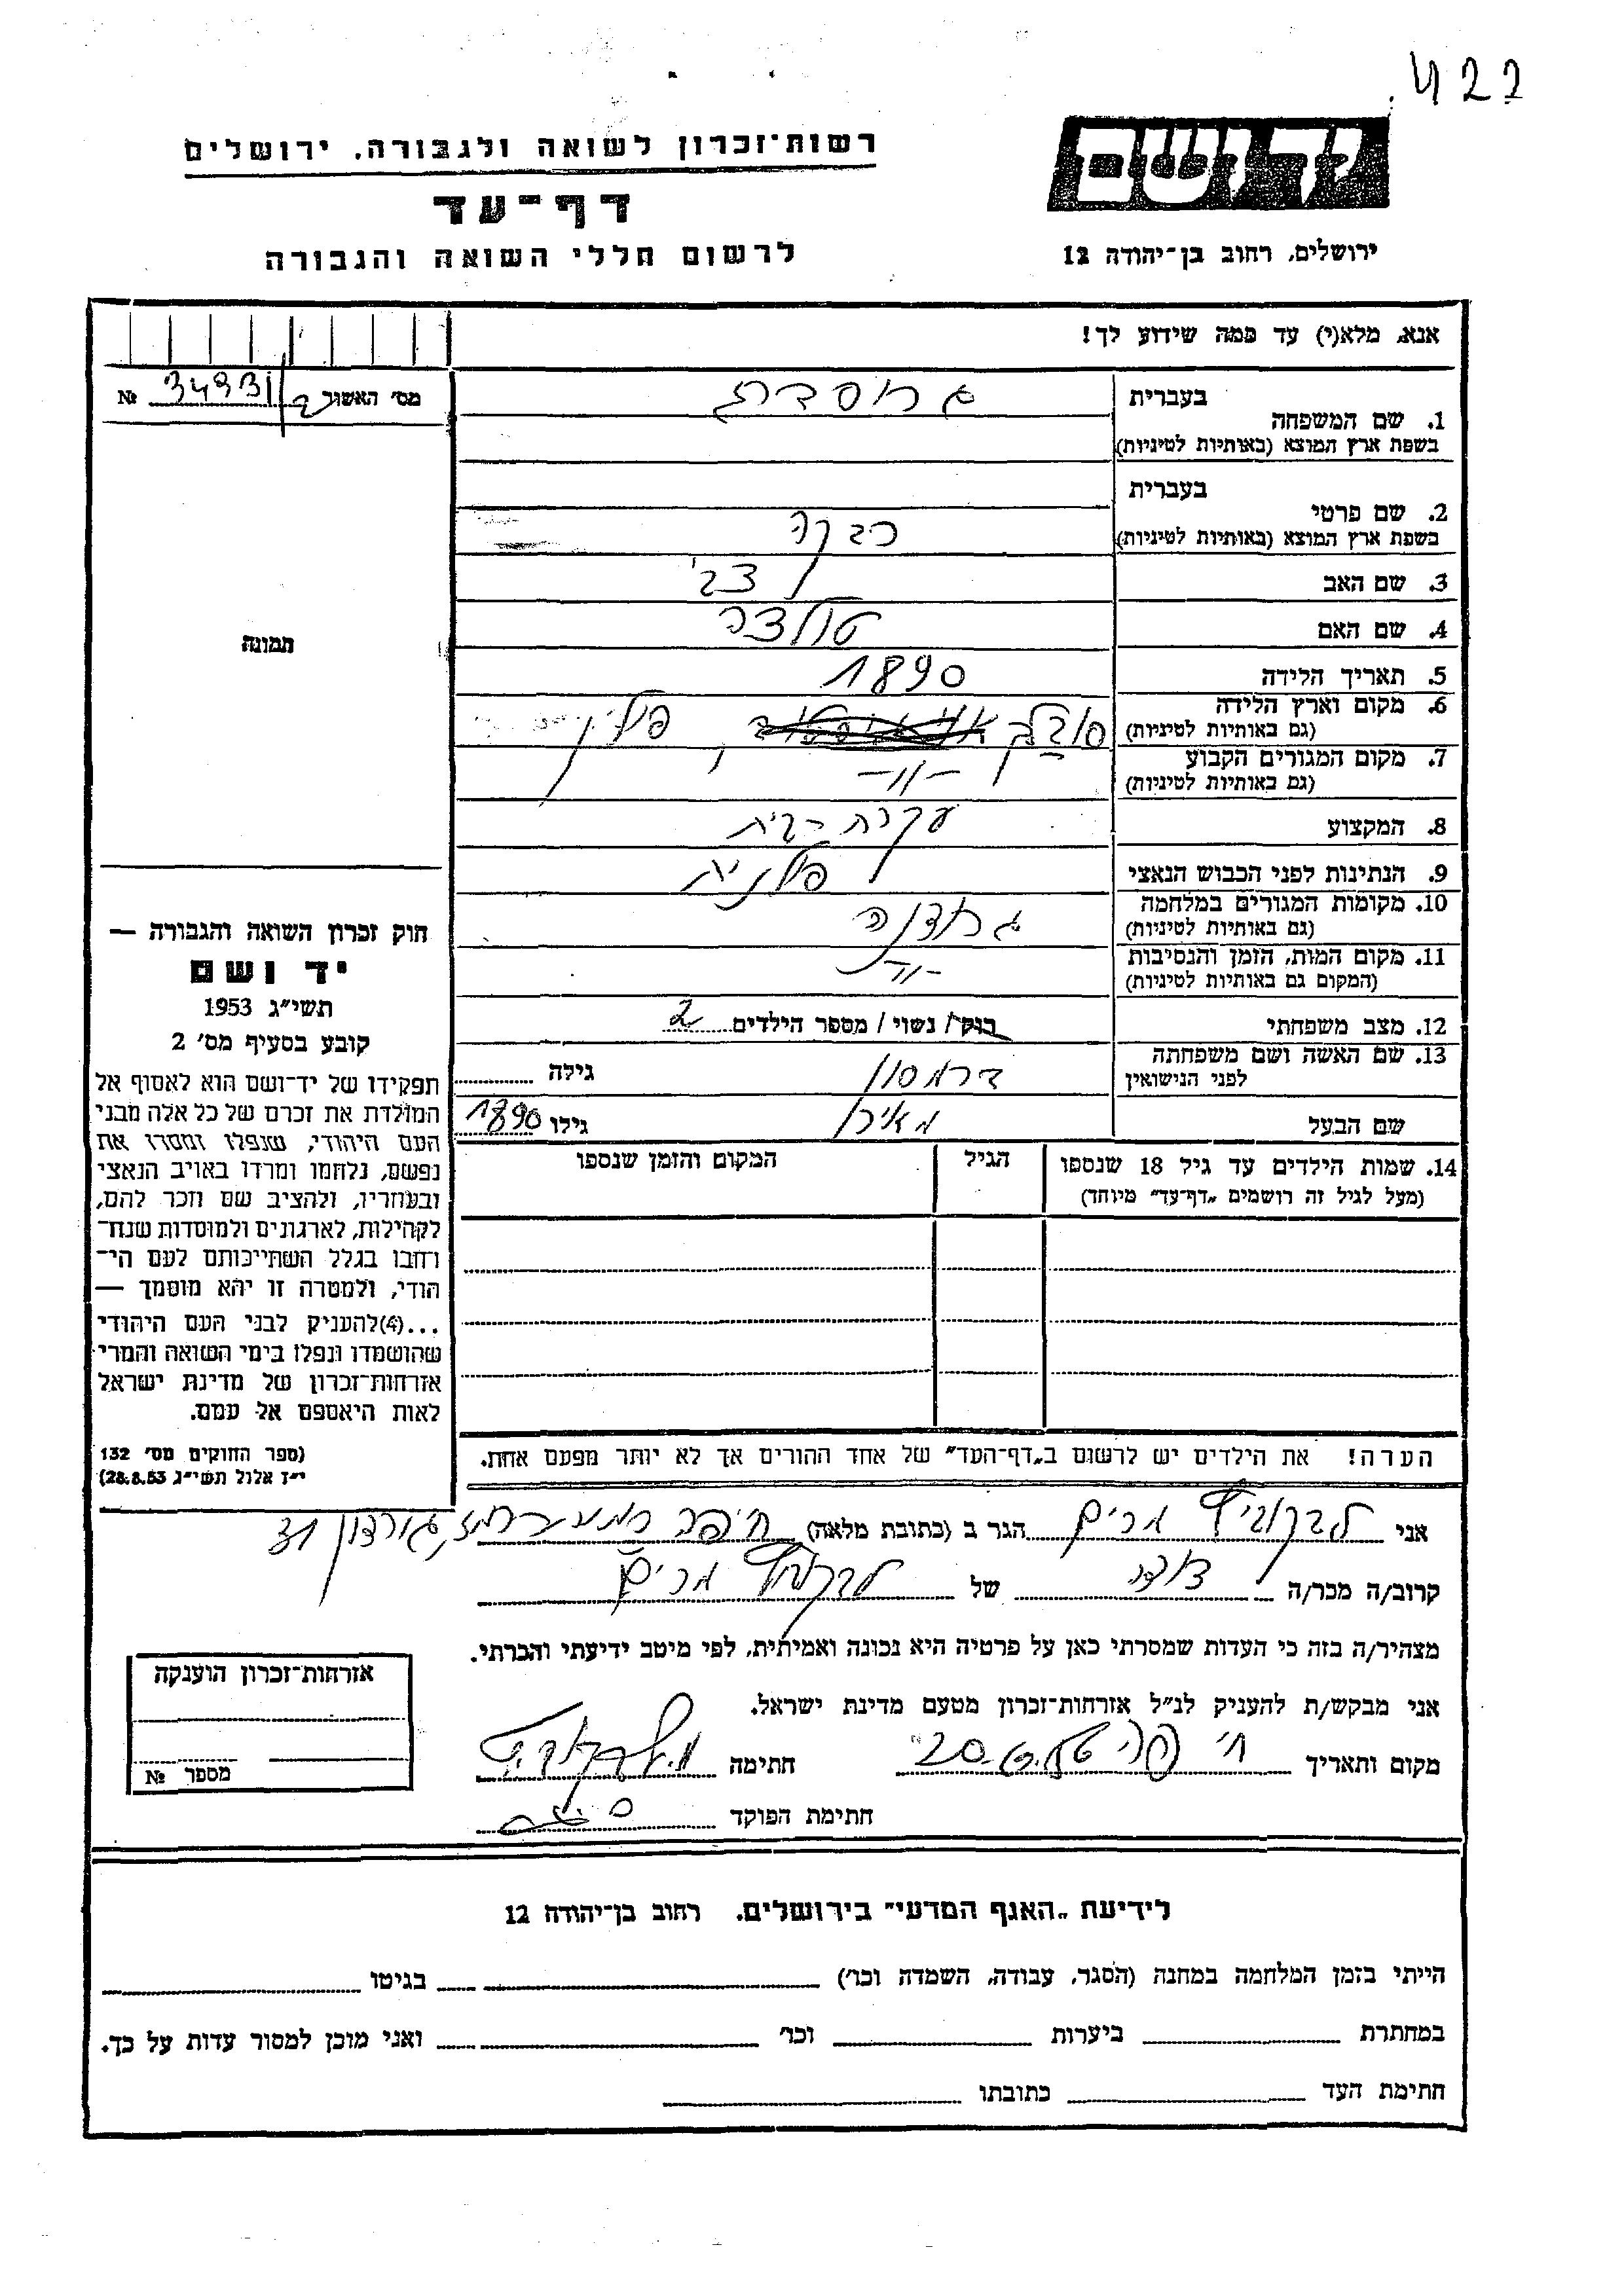 422
יד ושם
רשות־זכרון לשואה ולגבורה, ירושלים
דף־עד
לרשום חללי השואה והגבורה
ירושלים, רחוב בן־יהודה 12
אנא, מלא(י) עד כמה שידוע לך!
מס׳ האשור 34931 №
בעברית
1. שם המשפחה
בשפת ארץ המוצא (באותיות לטיניות)
בעברית
2. שם פרטי רבקה
בשפת ארץ המוצא (באותיות לטיניות)
3. שם האב צבי
4. שם האם
5. תאריך הלידה 1890
6. מקום וארץ הלידה פולין
(גם באותיות לטיניות)
7. מקום המגורים הקבוע -"-
(גם באותיות לטיניות)
8. המקצוע עקרת בית
9. הנתינות לפני הכבוש הנאצי פולנית
10. מקומות המגורים במלחמה גרודנה
(גם באותיות לטיניות)
11. מקום המות, הזמן והנסיבות -"-
(המקום גם באותיות לטיניות)
12. מצב משפחתי רווק / נשוי / מספר הילדים 2
13. שם האשה ושם משפחתה גילה
לפני הנישואין
שם הבעל מאיר גילו 1890
14. שמות הילדים עד גיל 18 שנספו הגיל המקום והזמן שנספו
(מעל לגיל זה רושמים „דף־עד״ מיוחד)
הערה! את הילדים יש לרשום ב„דף־העד״ של אחד ההורים אך לא יותר מפעם אחת.
תמונה
חוק זכרון השואה והגבורה —
יד ושם
תשי״ג 1953
קובע בסעיף מס׳ 2
תפקידו של יד־ושם הוא לאסוף אל
המולדת את זכרם של כל אלה מבני
העם היהודי, שנפלו ומסרו את
נפשם, נלחמו ומרדו באויב הנאצי
ובעוזריו, ולהציב שם וזכר להם,
לקהילות, לארגונים ולמוסדות שנח־
רחבו בגלל השתייכותם לעם הי־
הודי, ולמטרה זו יהא מוסמך —
...(4)להעניק לבני העם היהודי
שהושמדו ונפלו בימי השואה והמרי
אזרחות־זכרון של מדינת ישראל
לאות היאספם אל עמם.
(ספר החוקים מס׳ 132
י״ז אלול תשי״ג 28.8.53)
אני מרים הגר ב (כתובת מלאה) חיפה גורדון
קרוב/ה מכר/ה דודה של מרים
מצהיר/ה בזה כי העדות שמסרתי כאן על פרטיה היא נכונה ואמיתית, לפי מיטב ידיעתי והכרתי.
אני מבקש/ת להעניק לנ״ל אזרחות־זכרון מטעם מדינת ישראל.
מקום ותאריך חתימה
חתימת הפוקד
אזרחות־זכרון הוענקה
מספר №
לידיעת „האגף המדעי״ בירושלים, רחוב בן־יהודה 12
הייתי בזמן המלחמה במחנה (הסגר, עבודה, השמדה וכו׳) בגיטו
במחתרת ביערות וכו׳ ואני מוכן למסור עדות על כך.
חתימת העד כתובתו